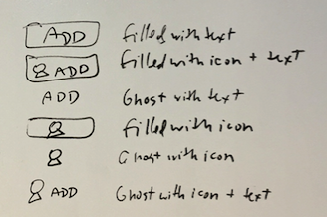 ADD Filled with text
ADD Filled with icon + text
ADD Ghost with text
Filled with icon
Ghost with icon
ADD Ghost with icon + text